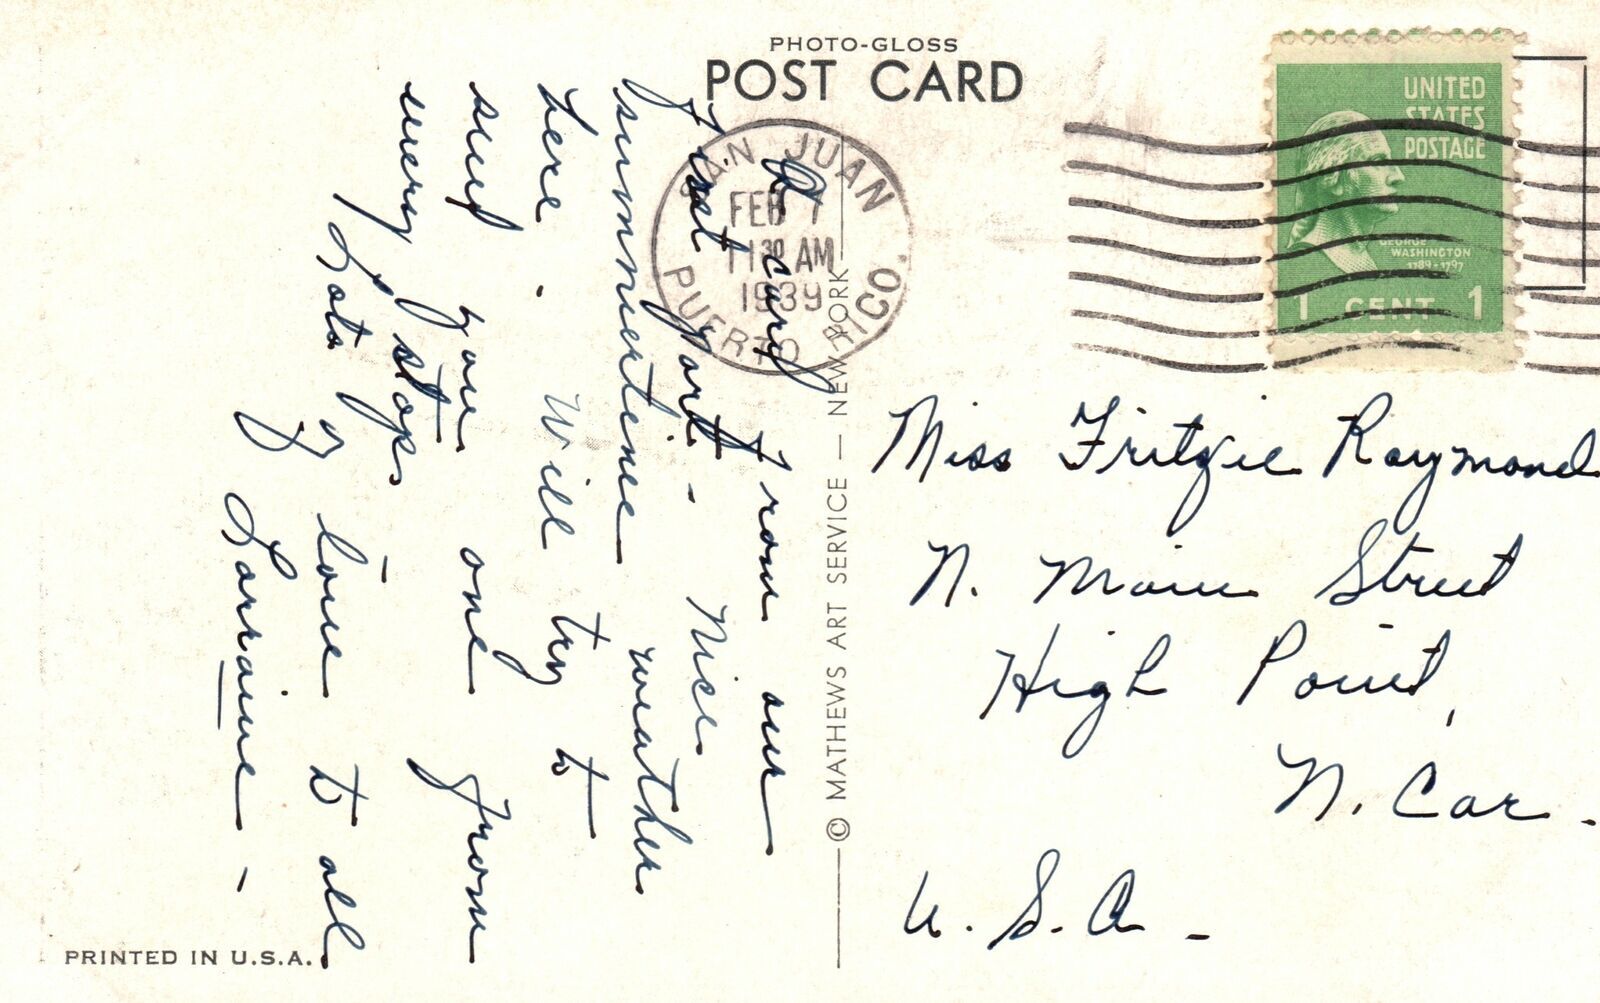 PHOTO-GLOSS
POST CARD
SAN JUAN
FEB 7
11 30 AM
1939
PUERTO RICO.
UNITED
STATES
POSTAGE
GEORGE
WASHINGTON
1789-1797
1 CENT 1
A card from our
first port - Nice
summertime weather
here. Will try to
send you one from
every stop. -
Lots of love to all
Lorraine -
© MATHEWS ART SERVICE — NEW YORK
Miss Fritzie Raymond
N. Main Street
High Point,
N. Car.
U.S.A. -
PRINTED IN U.S.A.